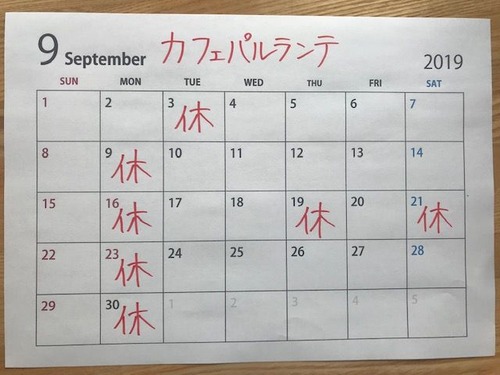 9 September カフェパルランテ 2019
SUN MON TUE WED THU FRI SAT
1 2 3 休 4 5 6 7
8 9 休 10 11 12 13 14
15 16 休 17 18 19 休 20 21 休
22 23 休 24 25 26 27 28
29 30 休 1 2 3 4 5